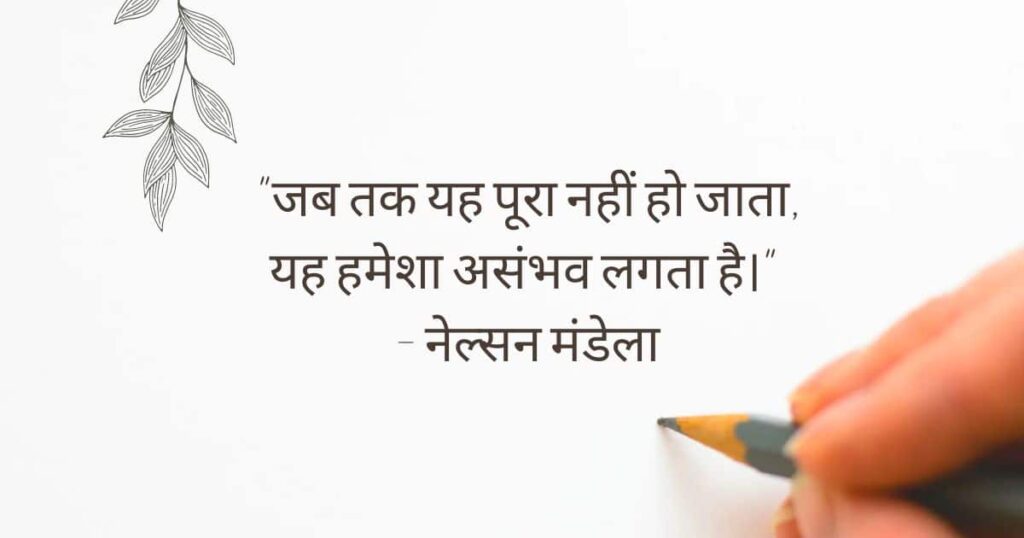 "जब तक यह पूरा नहीं हो जाता,
यह हमेशा असंभव लगता है।"
- नेल्सन मंडेला